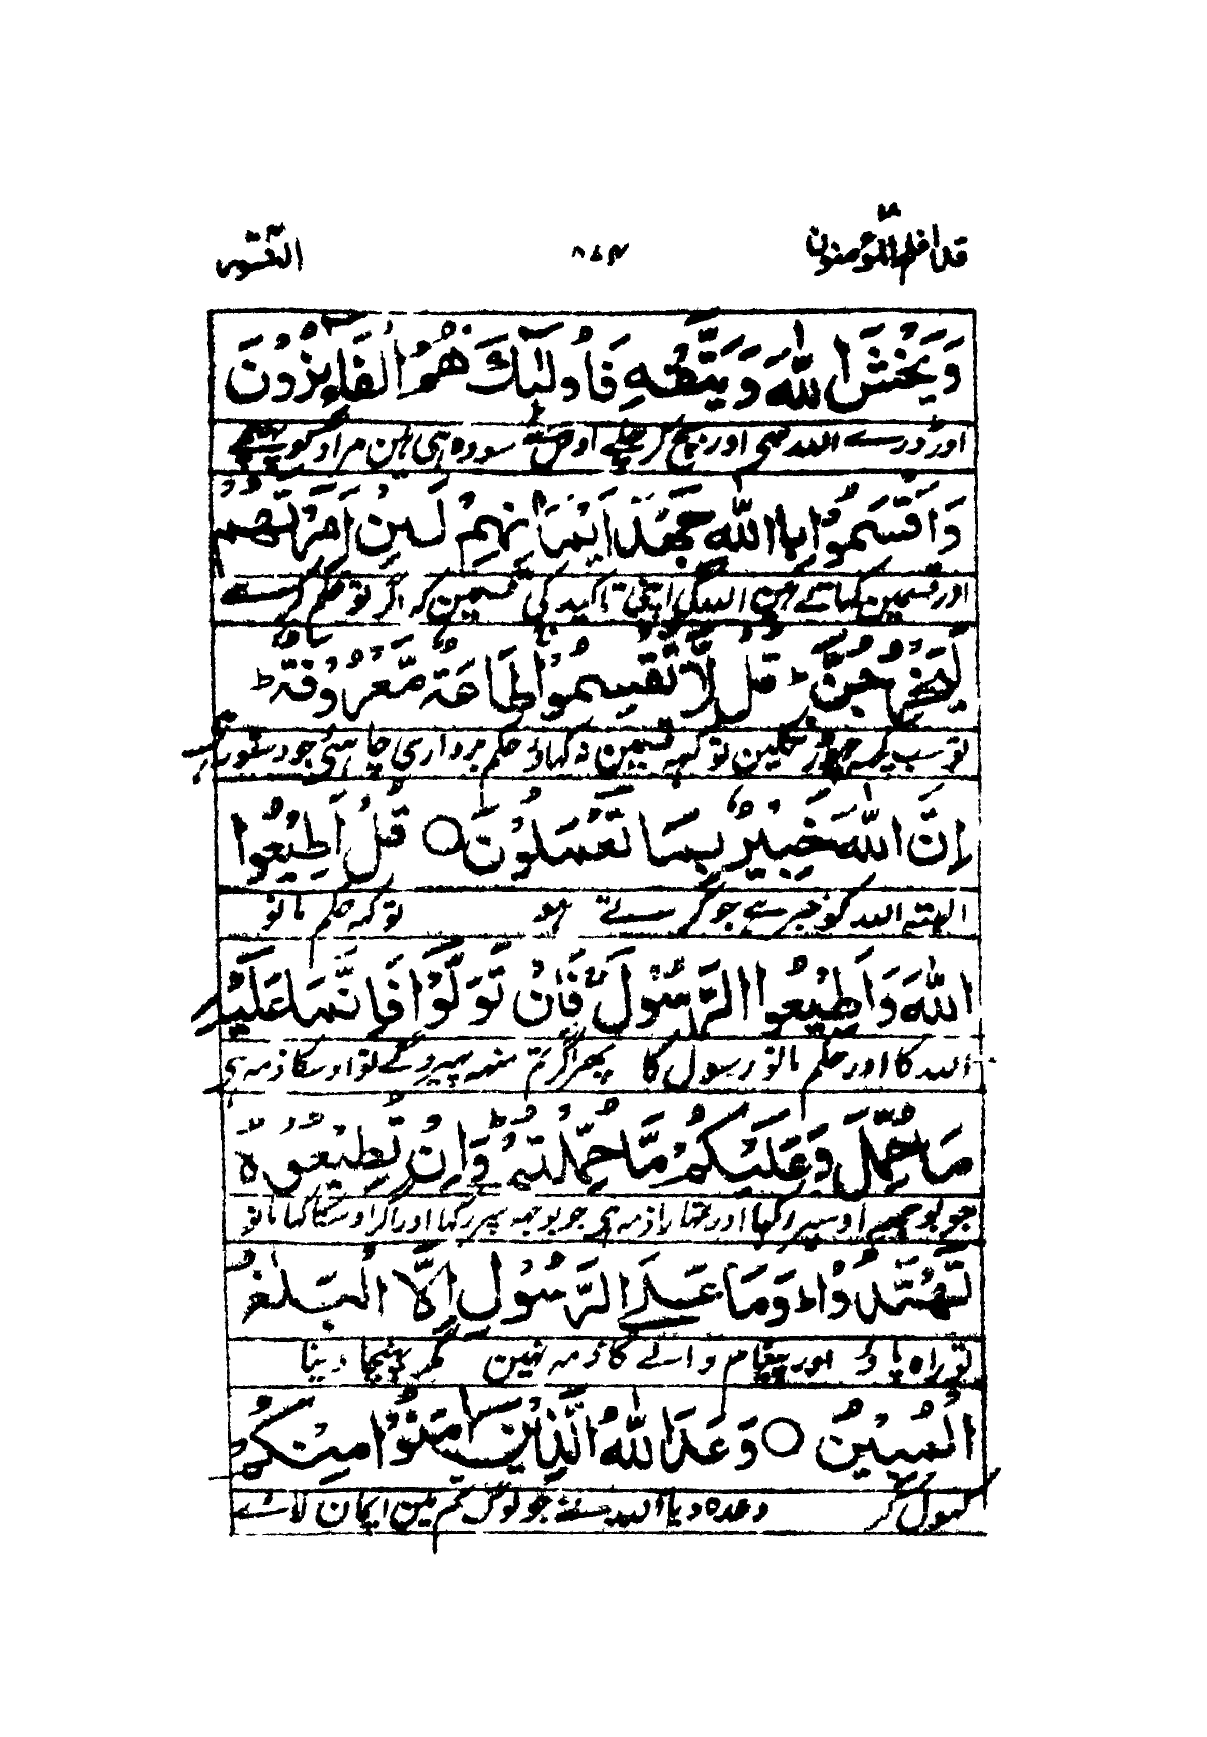 قد افلح المؤمنون ١٨ ٨٤٣ النور
وَيَخْشَ اللّٰهَ وَيَتَّقْهِ فَاُولٰٓئِكَ هُمُ الْفَآئِزُوْنَ
اور ڈرے اللہ سی اور بچکر چلے اوس سے سو وہ ہی ہین مراد کو پہنچے
وَاَقْسَمُوْا بِاللّٰهِ جَهْدَ اَيْمَانِهِمْ لَئِنْ اَمَرْتَهُمْ
اور قسمین کہاتے ہین اللہ کی اپنی تاکید کی قسمین کہ اگر تو حکم کرے
لَيَخْرُجُنَّ ط قُلْ لَّا تُقْسِمُوْا طَاعَةٌ مَّعْرُوْفَةٌ ط
تو سب کچہ چہوڑ نکلین تو کہہ قسمین نہ کہاؤ حکم برداری چاہئی جو دستور ہے
اِنَّ اللّٰهَ خَبِيْرٌۢ بِمَا تَعْمَلُوْنَ ○ قُلْ اَطِيْعُوا
البتہ اللہ کو خبر ہے جو کرتے ہو تو کہہ حکم مانو
اللّٰهَ وَاَطِيْعُوا الرَّسُوْلَ فَاِنْ تَوَلَّوْا فَاِنَّمَا عَلَيْهِ
اللہ کا اور حکم مانو رسول کا پھر اگر تم منہہ پہیروگے تو اوسکا ذمہ ہی
مَا حُمِّلَ وَعَلَيْكُمْ مَّا حُمِّلْتُمْ ط وَاِنْ تُطِيْعُوْهُ
جو بوجہہ اوسپر رکہا اور تمہارا ذمہ ہی جو بوجہہ تمپر رکہا اور اگر اوسکا کہا مانو
تَهْتَدُوْا ط وَمَا عَلَى الرَّسُوْلِ اِلَّا الْبَلٰغُ
تو راہ پاؤ اور پیغام والے کا ذمہ نہین مگر پہنچا دینا
الْمُبِيْنُ ○ وَعَدَ اللّٰهُ الَّذِيْنَ اٰمَنُوْا مِنْكُمْ
کہول کر وعدہ دیا اللہ نے جو لوگ تم مین ایمان لائے